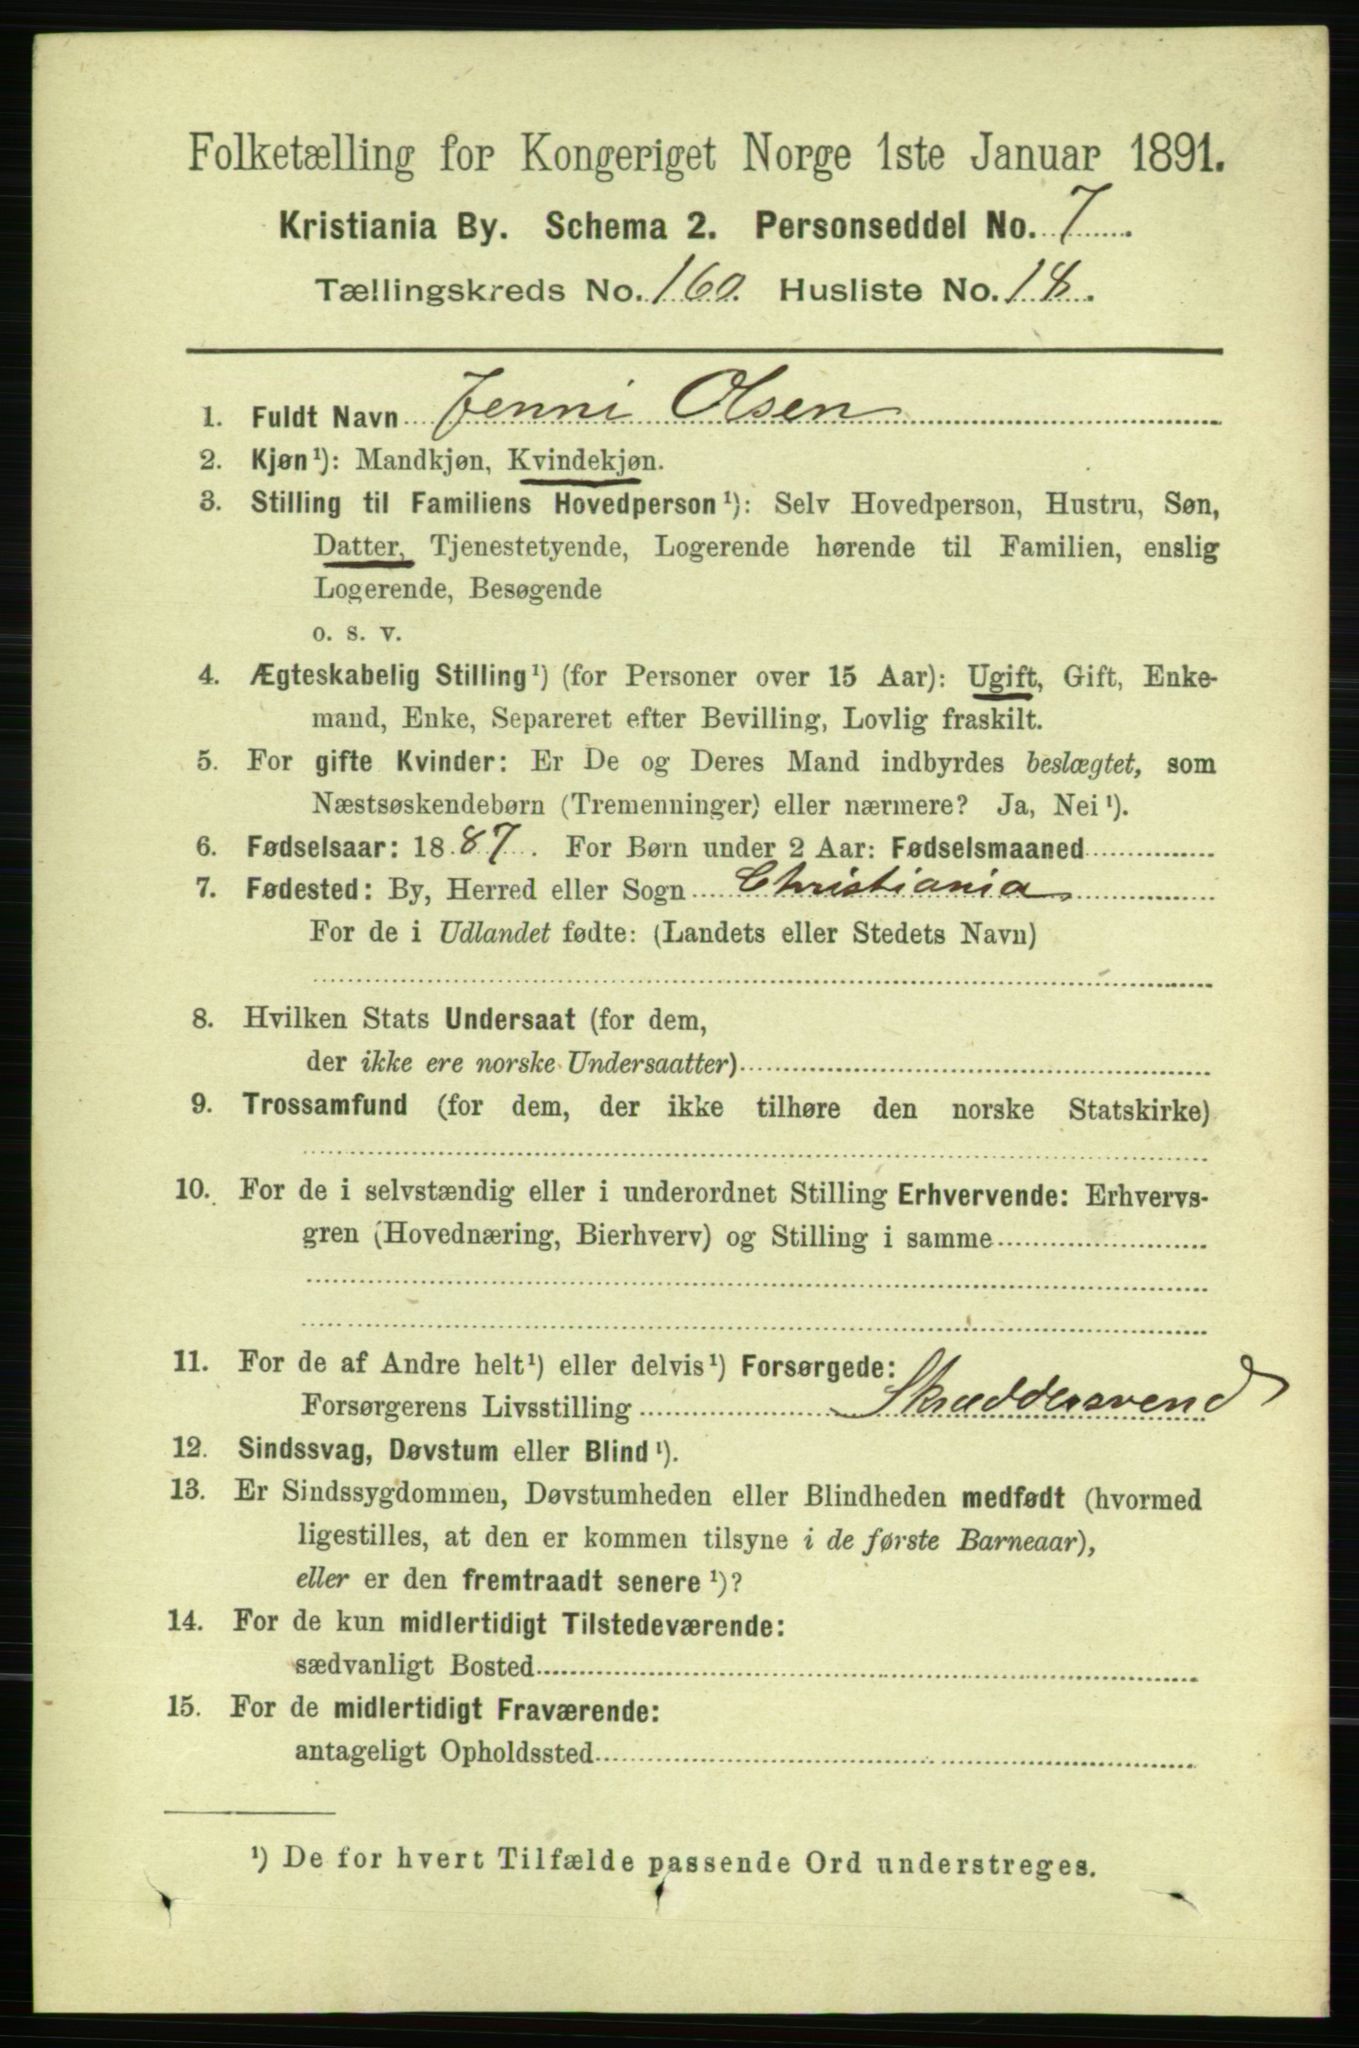 Folketælling for Kongeriget Norge 1ste Januar 1891.
Kristiania By. Schema 2. Personseddel No. 7.
Tællingskreds No. 160. Husliste No. 18.
1. Fuldt Navn Jenni Olsen
2. Kjøn¹): Mandkjøn, Kvindekjøn.
3. Stilling til Familiens Hovedperson¹): Selv Hovedperson, Hustru, Søn,
Datter, Tjenestetyende, Logerende hørende til Familien, enslig
Logerende, Besøgende
o. s. v.
4. Ægteskabelig Stilling¹) (for Personer over 15 Aar): Ugift, Gift, Enke-
mand, Enke, Separeret efter Bevilling, Lovlig fraskilt.
5. For gifte Kvinder: Er De og Deres Mand indbyrdes beslægtet, som
Næstsøskendebørn (Tremenninger) eller nærmere? Ja, Nei¹).
6. Fødselsaar: 1887. For Børn under 2 Aar: Fødselsmaaned
7. Fødested: By, Herred eller Sogn Christiania
For de i Udlandet fødte: (Landets eller Stedets Navn)
8. Hvilken Stats Undersaat (for dem,
der ikke ere norske Undersaatter)
9. Trossamfund (for dem, der ikke tilhøre den norske Statskirke)
10. For de i selvstændig eller i underordnet Stilling Erhvervende: Erhvervs-
gren (Hovednæring, Bierhverv) og Stilling i samme
11. For de af Andre helt¹) eller delvis¹) Forsørgede:
Forsørgerens Livsstilling Skræddersvend
12. Sindssvag, Døvstum eller Blind¹).
13. Er Sindssygdommen, Døvstumheden eller Blindheden medfødt (hvormed
ligestilles, at den er kommen tilsyne i de første Barneaar),
eller er den fremtraadt senere¹)?
14. For de kun midlertidigt Tilstedeværende:
sædvanligt Bosted
15. For de midlertidigt Fraværende:
antageligt Opholdssted
¹) De for hvert Tilfælde passende Ord understreges.